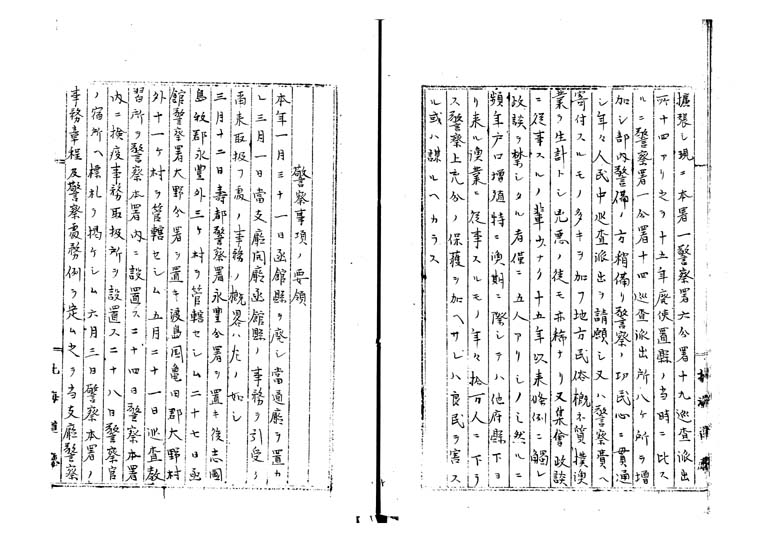 擴張シ現ニ本署一警察署六分署十九巡査派出
所十四アリ之ヲ十五年度使置縣ノ當時ニ比ス
ルニ警察署一分署十四巡査派出所八ケ所ヲ増
加シ部内警備ノ方稍備リ警察ノ功民心ニ貫通
シ年々人民中巡査派出ヲ請願シ又ハ警察費ヘ
寄付スルノ多キヲ加フ地方民俗概不質撲漁
業ヲ生計トシ兇悪ノ徒モ亦稀ナリ又集會政談
ニ從事スルノ輩少ナク十五年以来條例ニ觸レ
政談ヲ禁シタル者僅ニ五人アリシノミ然ルニ
頻年戸口増殖特ニ漁期ニ際シテハ他府縣下ヨ
リ来ル漁業ニ從事スルモノ年々拾万人ニ下ラ
ス警察上充分ノ保護ヲ加ヘサレハ良民ヲ害ス
ル或ハ謀ルヘカラス
警察事項ノ要領
本年一月三十一日函館縣ヲ廃シ當道廳ヲ置カ
レ三月一日當支廳開廳函館縣ノ事務ヲ引受ク
而来取扱フ處ノ事務ノ概畧ハ左ノ如シ
三月十二日壽都警察署永豊分署ヲ置キ後志國
島牧郡永豊外三ケ村ヲ管轄セシム二十七日函
館警察署大野分署ヲ置キ渡島国亀田郡大野村
外十一ケ村ヲ管轄セシム五月二十一日巡査教
習所ヲ警察本署内ニ設置ス二十四日警察本署
内ニ検疫事務取扱所ヲ設置ス二十八日警察官
ノ宿所ヘ標札ヲ掲ケシム六月三日警察本署ノ
事務章程及警察處務例ヲ定ム之ヲ當支廳警察
北海道廳